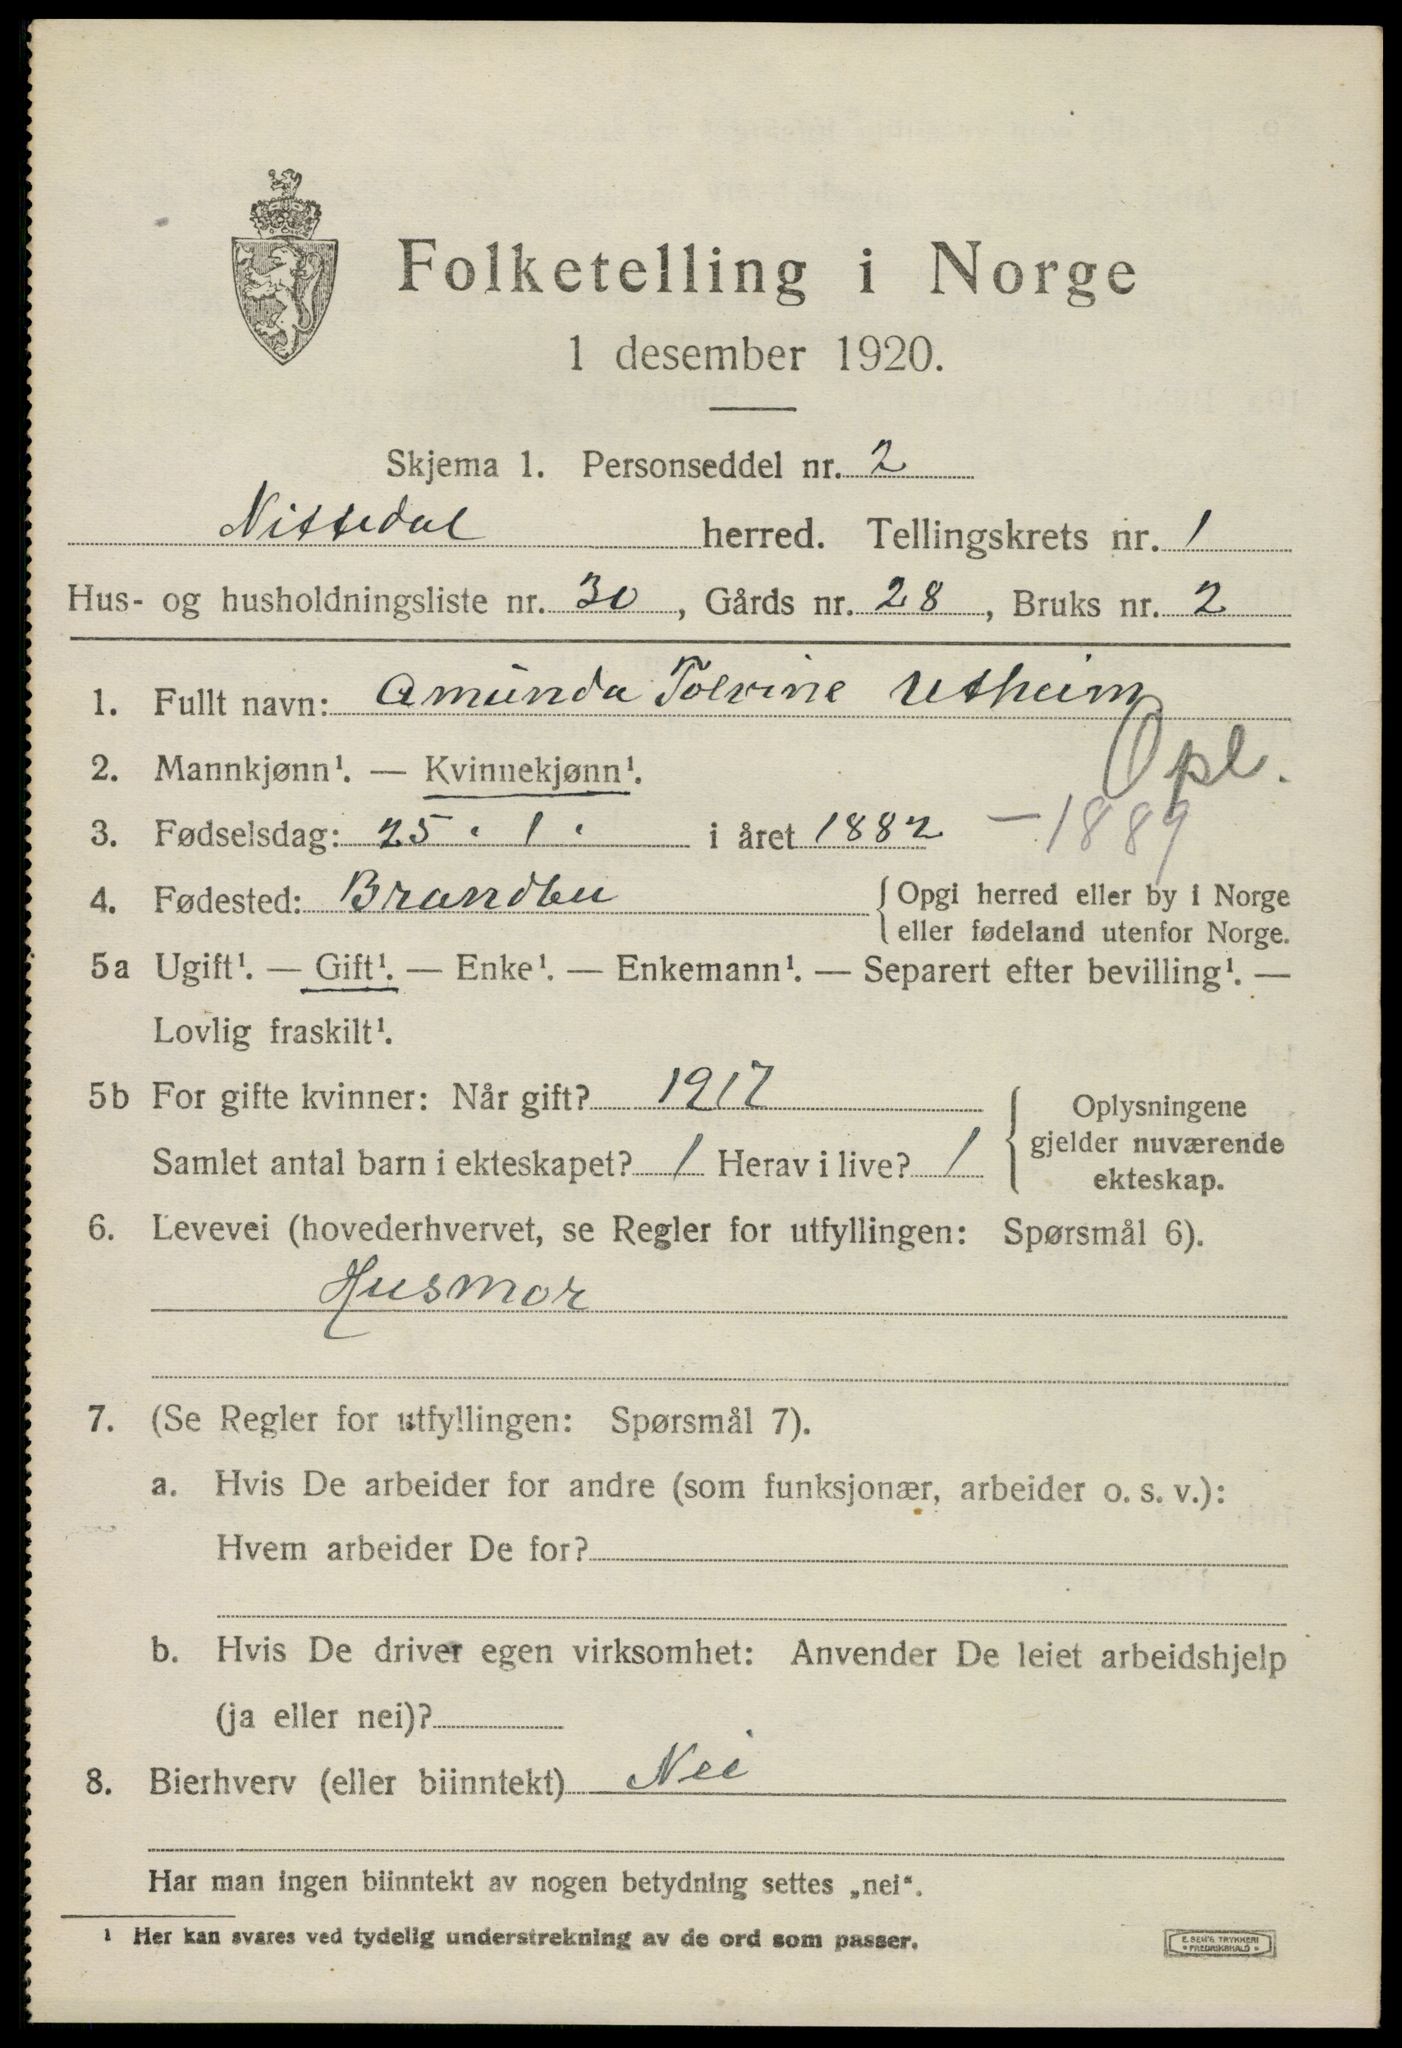 Folketelling i Norge
1 desember 1920.
Skjema 1. Personseddel nr. 2
Nittedal herred. Tellingskrets nr. 1
Hus- og husholdningsliste nr. 30, Gårds nr. 28, Bruks nr. 2
1. Fullt navn: Amunda Tolvine Utheim
Opl.
2. Mannkjønn¹. — Kvinnekjønn¹.
3. Fødselsdag: 25 . 1 . i året 1882 — 1889
4. Fødested: Brandbu {Opgi herred eller by i Norge
eller fødeland utenfor Norge.
5a Ugift¹. — Gift¹. — Enke¹. — Enkemann¹. — Separert efter bevilling¹. —
Lovlig fraskilt¹.
5b For gifte kvinner: Når gift? 1917
Samlet antal barn i ekteskapet? 1 Herav i live? 1
Oplysningene
gjelder nuværende
ekteskap.
6. Levevei (hovederhvervet, se Regler for utfyllingen: Spørsmål 6).
Husmor
7. (Se Regler for utfyllingen: Spørsmål 7).
a. Hvis De arbeider for andre (som funksjonær, arbeider o. s. v.):
Hvem arbeider De for?
b. Hvis De driver egen virksomhet: Anvender De leiet arbeidshjelp
(ja eller nei)?
8. Bierhverv (eller biinntekt) Nei
Har man ingen biinntekt av nogen betydning settes „nei“.
¹ Her kan svares ved tydelig understrekning av de ord som passer.
E. SEM'S TRYKKERI
* FREDRIKSHALD *